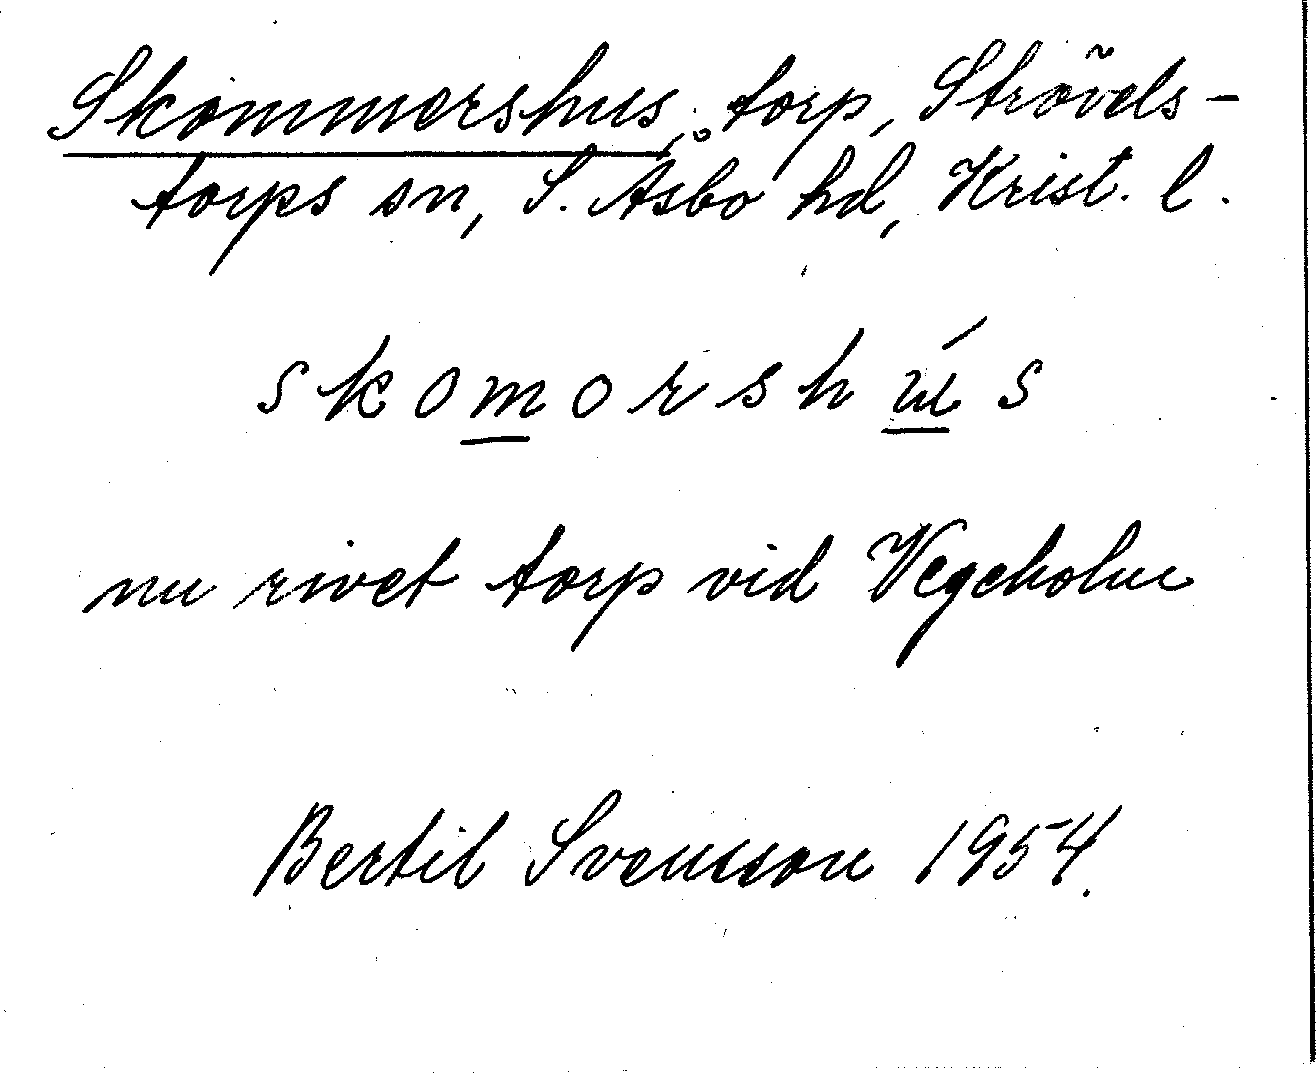 Skommershus, torp, Strövels-
torps sn, S. Åsbo hd, Krist. l.
skomorshús
nu rivet torp vid Vegeholm
Bertil Svensson 1954.